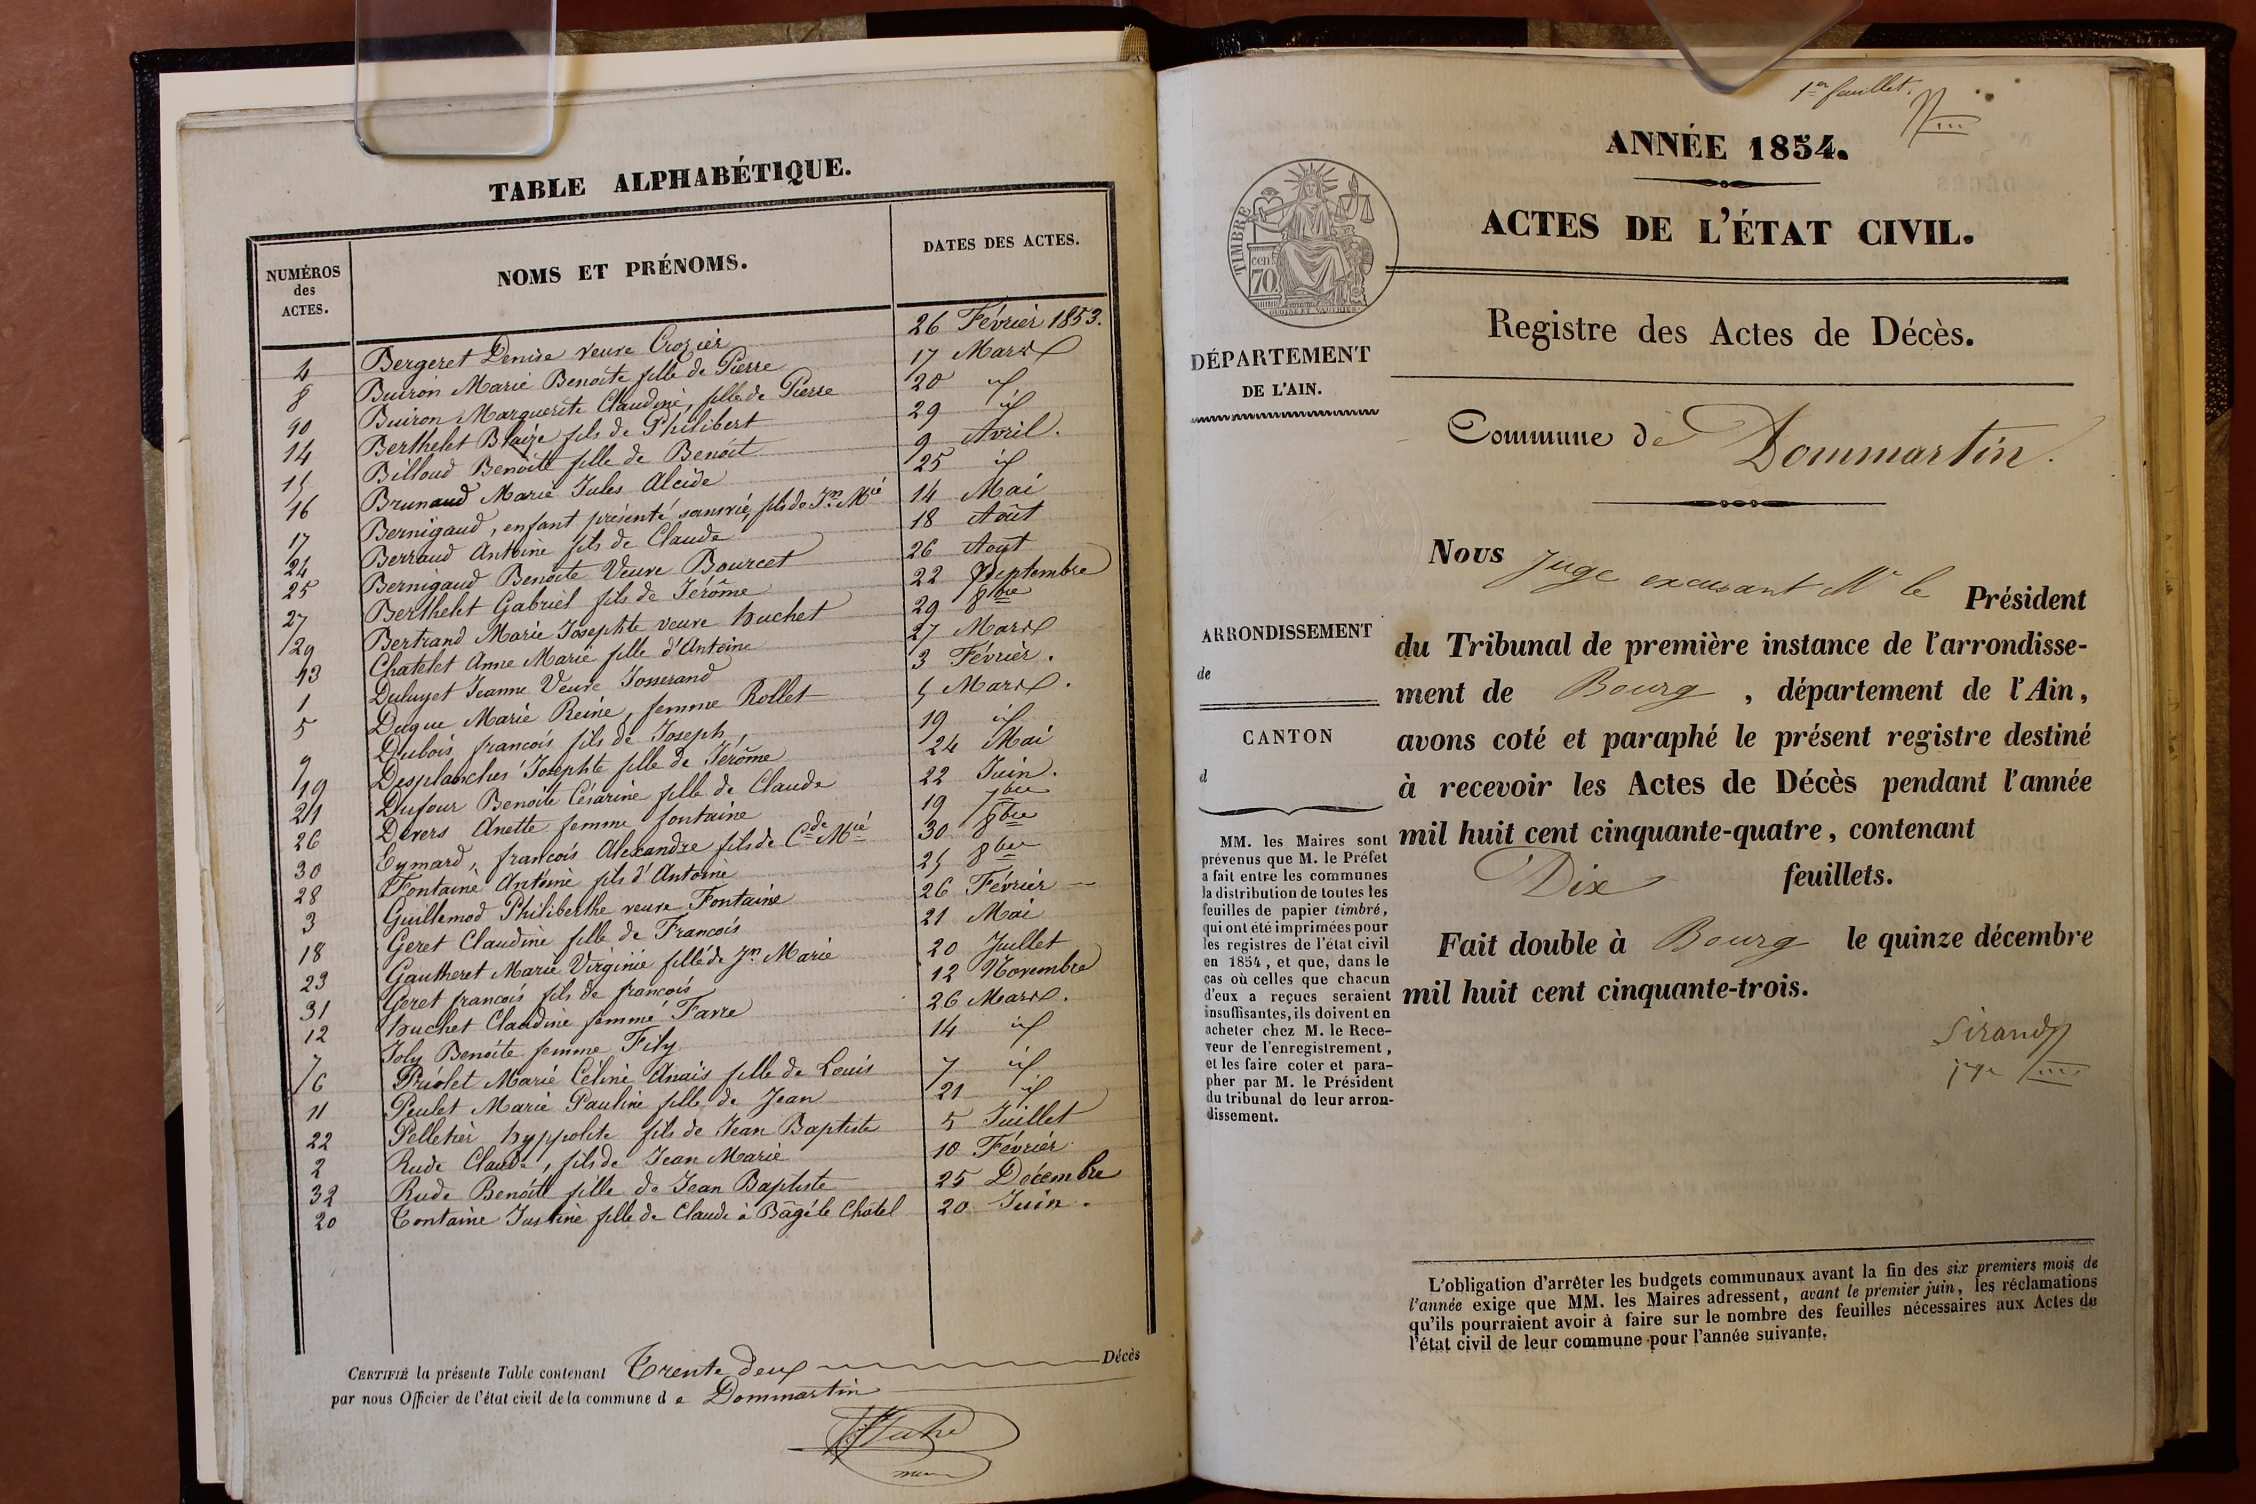 TABLE ALPHABÉTIQUE.
NUMÉROS des ACTES. NOMS ET PRÉNOMS. DATES DES ACTES.
4 Bergeret Denise veuve Crozier 26 Février 1853.
8 Buiron Marie Benoite fille de Pierre 17 Mars
10 Buiron Marguerite Claudine, fille de Pierre 20 id
14 Berthelet Blaize fils de Philibert 29 id
15 Billoud Benoite fille de Benoit 9 Avril.
16 Brunaud Marie Jules Alcide 25 id
17 Bernigaud, enfant présenté sans vie, fils de Jn Mie 14 Mai
24 Berraud Antoine fils de Claude 18 Août
25 Bernigaud Benoite Veuve Bourcet 26 Août
27 Berthelet Gabriel fils de Jérôme 22 Septembre
29 Bertrand Marie Josephte veuve huchet 29 8bre
13 Chatelet Anne Marie fille d'Antoine 27 Mars
1 Jeanne Veuve Josserand 3 Février.
5 Duque Marie Reine, femme Rollet 5 Mars.
9 Dubois francois fils de Joseph, 19 id
19 Desplanches Josephte fille de Jérôme 24 Mai
21 Dufour Benoite Césarine fille de Claude 22 Juin.
26 Devers Anette femme fontaine 19 7bre
30 Eymard, francois Alexandre fils de Cde Mie 30 8bre
28 Fontaine Antoine fils d'Antoine 25 8bre
3 Guillemod Philiberthe veuve Fontaine 26 Février
18 Geret Claudine fille de Francois 21 Mai
23 Gautheret Marie Virginie fille de Jn Marie 20 Juillet
31 Geret francois fils de francois 12 Novembre
12 huchet Claudine femme Favre 26 Mars.
7 Joly Benoite femme Fily 14 id
6 Priolet Marie Céline Anais fille de Louis 7 id
11 Peulet Marie Pauline fille de Jean 21 id
22 Pelletier hyppolite fils de Jean Baptiste 5 Juillet
2 Rude Claude, fils de Jean Marie 10 Février
32 Rude Benoite fille de Jean Baptiste 25 Décembre
20 Tontaine Justine fille de Claude à Bâgé le Châtel 20 Juin.
CERTIFIÉ la présente Table contenant Trente deux Décès
par nous Officier de l'état civil de la commune d e Dommartin
1er feuillet.
ANNÉE 1854.
ACTES DE L'ÉTAT CIVIL.
TIMBRE
cent
70
Registre des Actes de Décès.
DÉPARTEMENT
DE L'AIN.
Commune de Dommartin.
Nous Juge excusant Mr le Président
du Tribunal de première instance de l'arrondisse-
ment de Bourg, département de l'Ain,
avons coté et paraphé le présent registre destiné
à recevoir les Actes de Décès pendant l'année
mil huit cent cinquante-quatre, contenant
Dix feuillets.
Fait double à Bourg le quinze décembre
mil huit cent cinquante-trois.
Sirand
juge
ARRONDISSEMENT
de
CANTON
d
MM. les Maires sont
prévenus que M. le Préfet
a fait entre les communes
la distribution de toutes les
feuilles de papier timbré,
qui ont été imprimées pour
les registres de l'état civil
en 1854, et que, dans le
cas où celles que chacun
d'eux a reçues seraient
insuffisantes, ils doivent en
acheter chez M. le Rece-
veur de l'enregistrement,
et les faire coter et para-
pher par M. le Président
du tribunal de leur arron-
dissement.
L'obligation d'arrêter les budgets communaux avant la fin des six premiers mois de
l'année exige que MM. les Maires adressent, avant le premier juin, les réclamations
qu'ils pourraient avoir à faire sur le nombre des feuilles nécessaires aux Actes de
l'état civil de leur commune pour l'année suivante.